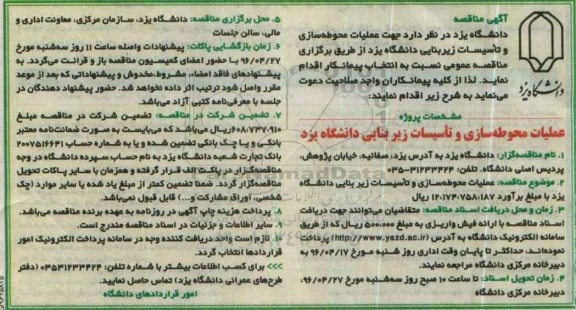 آگهی مناقصه
دانشگاه یزد در نظر دارد جهت عملیات محوطه‌سازی
و تأسیسات زیربنایی دانشگاه یزد از طریق برگزاری
مناقصه عمومی نسبت به انتخاب پیمانکار اقدام
نماید. لذا از کلیه پیمانکاران واجد صلاحیت دعوت
می‌نماید به شرح زیر اقدام نمایند:
دانشگاه یزد
مشخصات پروژه
عملیات محوطه‌سازی و تأسیسات زیر بنایی دانشگاه یزد
۱. نام مناقصه‌گزار: دانشگاه یزد به آدرس یزد، صفائیه، خیابان پژوهش،
پردیس اصلی دانشگاه. تلفن: ۳۱۲۳۳۴۲۴-۰۳۵
۲. موضوع مناقصه: عملیات محوطه‌سازی و تأسیسات زیر بنایی دانشگاه
یزد با مبلغ برآورد ۱۲،۱۷۴،۷۵۸،۱۸۷ ریال
۳. زمان و محل دریافت اسناد مناقصه: متقاضیان می‌توانند جهت دریافت
اسناد مناقصه با ارائه فیش واریزی به مبلغ ۵۰۰،۰۰۰ ریال که از طریق
سامانه الکترونیک دانشگاه به آدرس (http://www.yazd.ac.ir) پرداخت
نموده‌اند، حداکثر تا پایان وقت اداری روز شنبه مورخ ۹۶/۰۴/۱۷ به
دبیرخانه مرکزی دانشگاه مراجعه نمایند.
۴. زمان تحویل اسناد: تا ساعت ۱۰ صبح روز سه‌شنبه مورخ ۹۶/۰۴/۲۷؛
دبیرخانه مرکزی دانشگاه
۵. محل برگزاری مناقصه: دانشگاه یزد، سازمان مرکزی، معاونت اداری و
مالی، سالن جلسات
۶. زمان بازگشایی پاکات: پیشنهادات واصله ساعت ۱۱ روز سه‌شنبه مورخ
۹۶/۰۴/۲۷ با حضور اعضای کمیسیون مناقصه باز و قرائت می‌گردد. به
پیشنهادهای فاقد امضاء، مشروط، مخدوش و پیشنهاداتی که بعد از موعد
مقرر واصل شود ترتیب اثر داده نخواهد شد. حضور پیشنهاد دهندگان در
جلسه با معرفی‌نامه کتبی آزاد می‌باشد.
۷. تضمین شرکت در مناقصه: تضمین شرکت در مناقصه مبلغ
۶۰۸،۷۳۷،۹۱۰ ریال می‌باشد که می‌بایست به صورت ضمانت‌نامه معتبر
بانکی و یا چک بانکی تضمین شده و یا به شماره حساب ۲۰۰۷۵۱۶۶۴۱
بانک تجارت شعبه دانشگاه یزد به نام حساب سپرده دانشگاه در وجه
مناقصه‌گزار در پاکت الف قرار گرفته و همزمان با سایر پاکات تحویل
مناقصه‌گزار گردد. ضمناً تضمین کمتر از مبلغ یاد شده یا سایر موارد (چک
شخصی، اوراق مشارکت و...) قابل قبول نمی‌باشد.
۸. پرداخت هزینه چاپ آگهی در روزنامه به عهده برنده مناقصه می‌باشد.
۹. سایر اطلاعات و جزئیات در اسناد مناقصه مندرج است.
۱۰. لازم است واحد دریافت کننده وجه در سامانه پرداخت الکترونیک امور
قراردادها انتخاب گردد.
>>> برای کسب اطلاعات بیشتر با شماره تلفن: ۰۳۵۳۱۲۳۳۴۲۴ (دفتر
طرح‌های عمرانی دانشگاه یزد) تماس حاصل نمایید.
امور قراردادهای دانشگاه